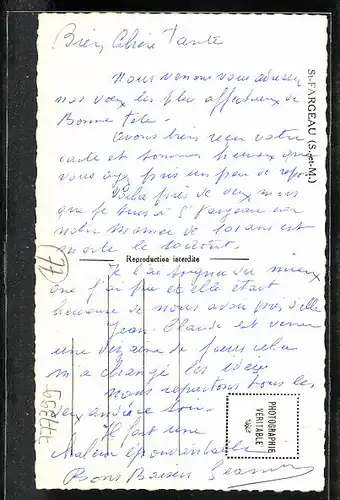 Bien Chère Tante
Nous venons vous adresser
nos voeux les plus affectueux de
Bonne Fête.
Avons bien reçu votre
carte et sommes heureux que
vous ayez pris un peu de repos
Voilà près de deux mois
que je suis à St Fargeau car
notre maman de
est morte le
Reproduction interdite
Je l'ai soignée du mieux
que j'ai pu et elle était
heureuse de nous avoir près d'elle
Jean-Claude est venu
une dizaine de jours cela
m'a changé les idées
nous repartons tous les
deux
Il fait une
chaleur épouvantable
Bons Baisers
St-FARGEAU (S.-et-M.)
PHOTOGRAPHIE
VÉRITABLE
77
77359